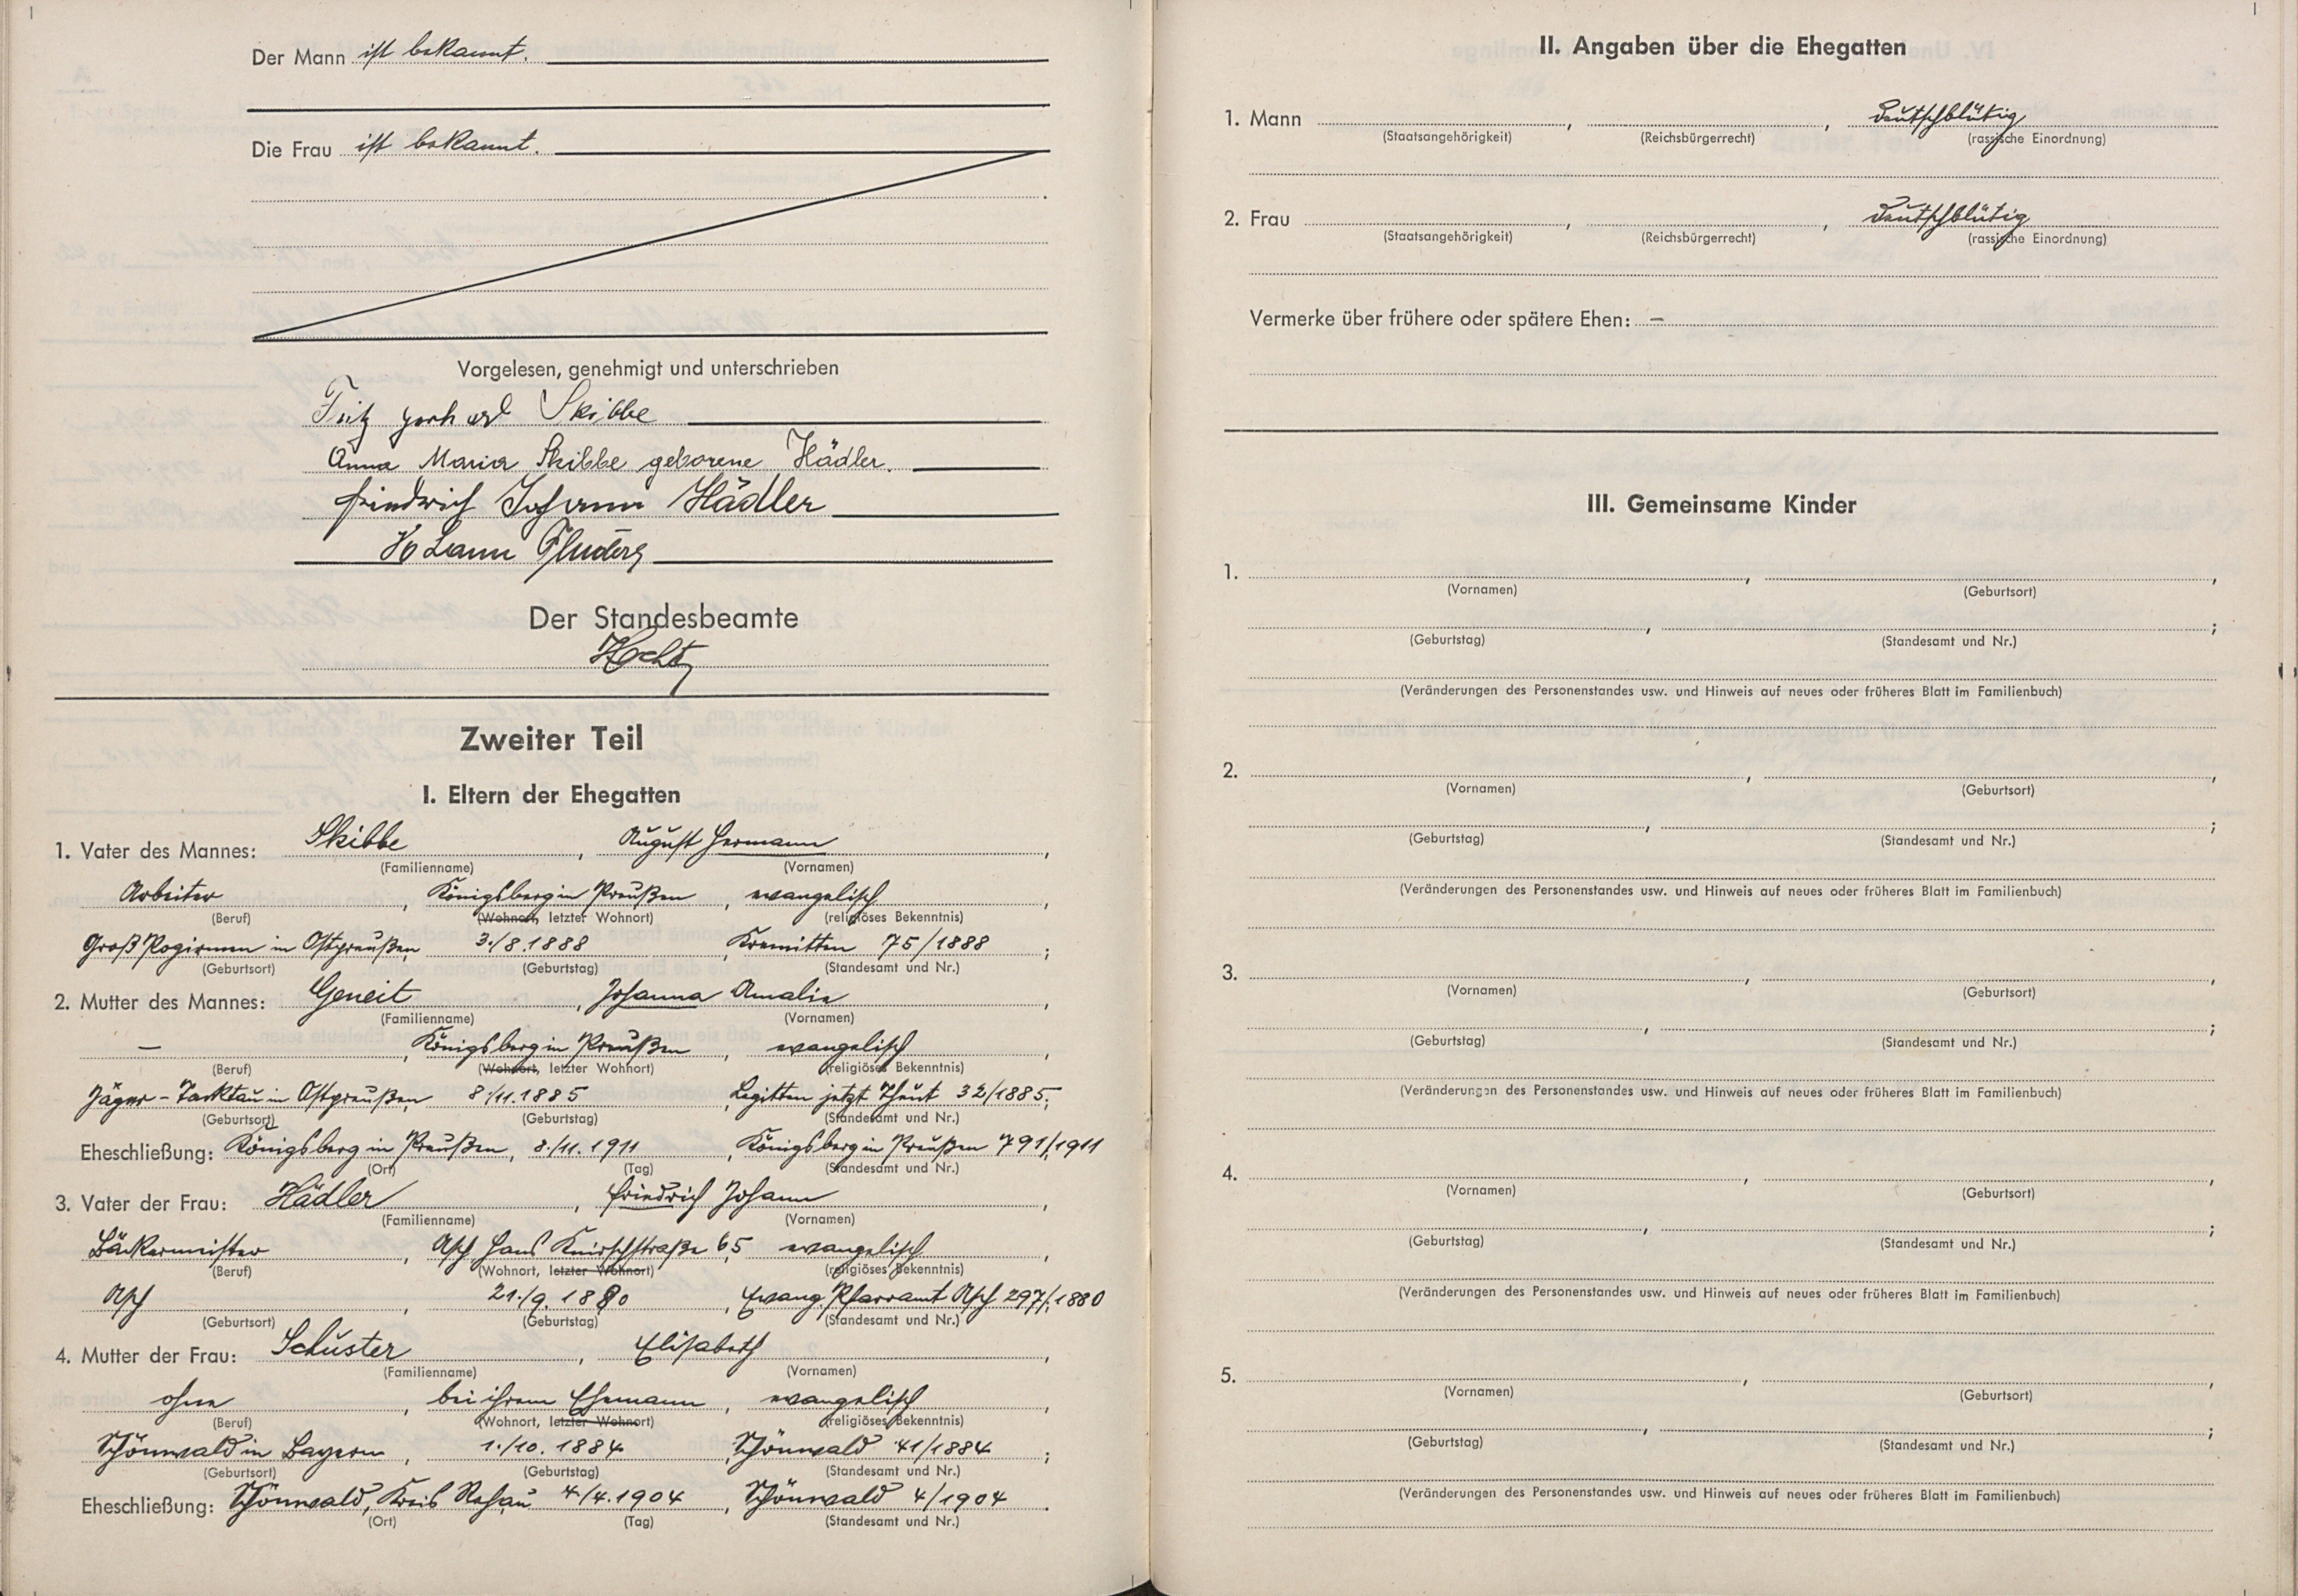 Der Mann ist bekannt.
Die Frau ist bekannt.
Vorgelesen, genehmigt und unterschrieben
Fritz Gerhard Skibbe
Anna Maria Skibbe geborene Hädler.
Friedrich Johann Hädler
Johann
Der Standesbeamte
Zweiter Teil
I. Eltern der Ehegatten
1. Vater des Mannes: Skibbe, August Hermann,
(Familienname) (Vornamen)
Arbeiter, Königsberg in Preußen, evangelisch,
(Beruf) (Wohnort, letzter Wohnort) (religiöses Bekenntnis)
Groß in Ostpreußen, 3./8.1888, Kremitten 75/1888;
(Geburtsort) (Geburtstag) (Standesamt und Nr.)
2. Mutter des Mannes: Geneit, Johanna Amalie,
(Familienname) (Vornamen)
—, Königsberg in Preußen, evangelisch,
(Beruf) (Wohnort, letzter Wohnort) (religiöses Bekenntnis)
Jäger-Tacktau in Ostpreußen, 8./11.1885, Legitten jetzt 32/1885;
(Geburtsort) (Geburtstag) (Standesamt und Nr.)
Eheschließung: Königsberg in Preußen, 8./11.1911, Königsberg in Preußen 791/1911
(Ort) (Tag) (Standesamt und Nr.)
3. Vater der Frau: Hädler, Friedrich Johann,
(Familienname) (Vornamen)
Bäckermeister, Asch, Hans Knirschstraße 65, evangelisch,
(Beruf) (Wohnort, letzter Wohnort) (religiöses Bekenntnis)
Asch, 21./9.1880, Evang. Pfarramt Asch 297/1880
(Geburtsort) (Geburtstag) (Standesamt und Nr.)
4. Mutter der Frau: Schuster, Elisabeth,
(Familienname) (Vornamen)
ohne, bei ihrem Ehemann, evangelisch,
(Beruf) (Wohnort, letzter Wohnort) (religiöses Bekenntnis)
Schönwald in Bayern, 1./10.1884, Schönwald 41/1884;
(Geburtsort) (Geburtstag) (Standesamt und Nr.)
Eheschließung: Schönwald, Kreis Rehau 4./4.1904, Schönwald 4/1904.
(Ort) (Tag) (Standesamt und Nr.)
II. Angaben über die Ehegatten
1. Mann , , deutschblütig
(Staatsangehörigkeit) (Reichsbürgerrecht) (rassische Einordnung)
2. Frau , , deutschblütig
(Staatsangehörigkeit) (Reichsbürgerrecht) (rassische Einordnung)
Vermerke über frühere oder spätere Ehen: —
III. Gemeinsame Kinder
1. , ,
(Vornamen) (Geburtsort)
, ;
(Geburtstag) (Standesamt und Nr.)
(Veränderungen des Personenstandes usw. und Hinweis auf neues oder früheres Blatt im Familienbuch)
2. , ,
(Vornamen) (Geburtsort)
, ;
(Geburtstag) (Standesamt und Nr.)
(Veränderungen des Personenstandes usw. und Hinweis auf neues oder früheres Blatt im Familienbuch)
3. , ,
(Vornamen) (Geburtsort)
, ;
(Geburtstag) (Standesamt und Nr.)
(Veränderungen des Personenstandes usw. und Hinweis auf neues oder früheres Blatt im Familienbuch)
4. , ,
(Vornamen) (Geburtsort)
, ;
(Geburtstag) (Standesamt und Nr.)
(Veränderungen des Personenstandes usw. und Hinweis auf neues oder früheres Blatt im Familienbuch)
5. , ,
(Vornamen) (Geburtsort)
, ;
(Geburtstag) (Standesamt und Nr.)
(Veränderungen des Personenstandes usw. und Hinweis auf neues oder früheres Blatt im Familienbuch)